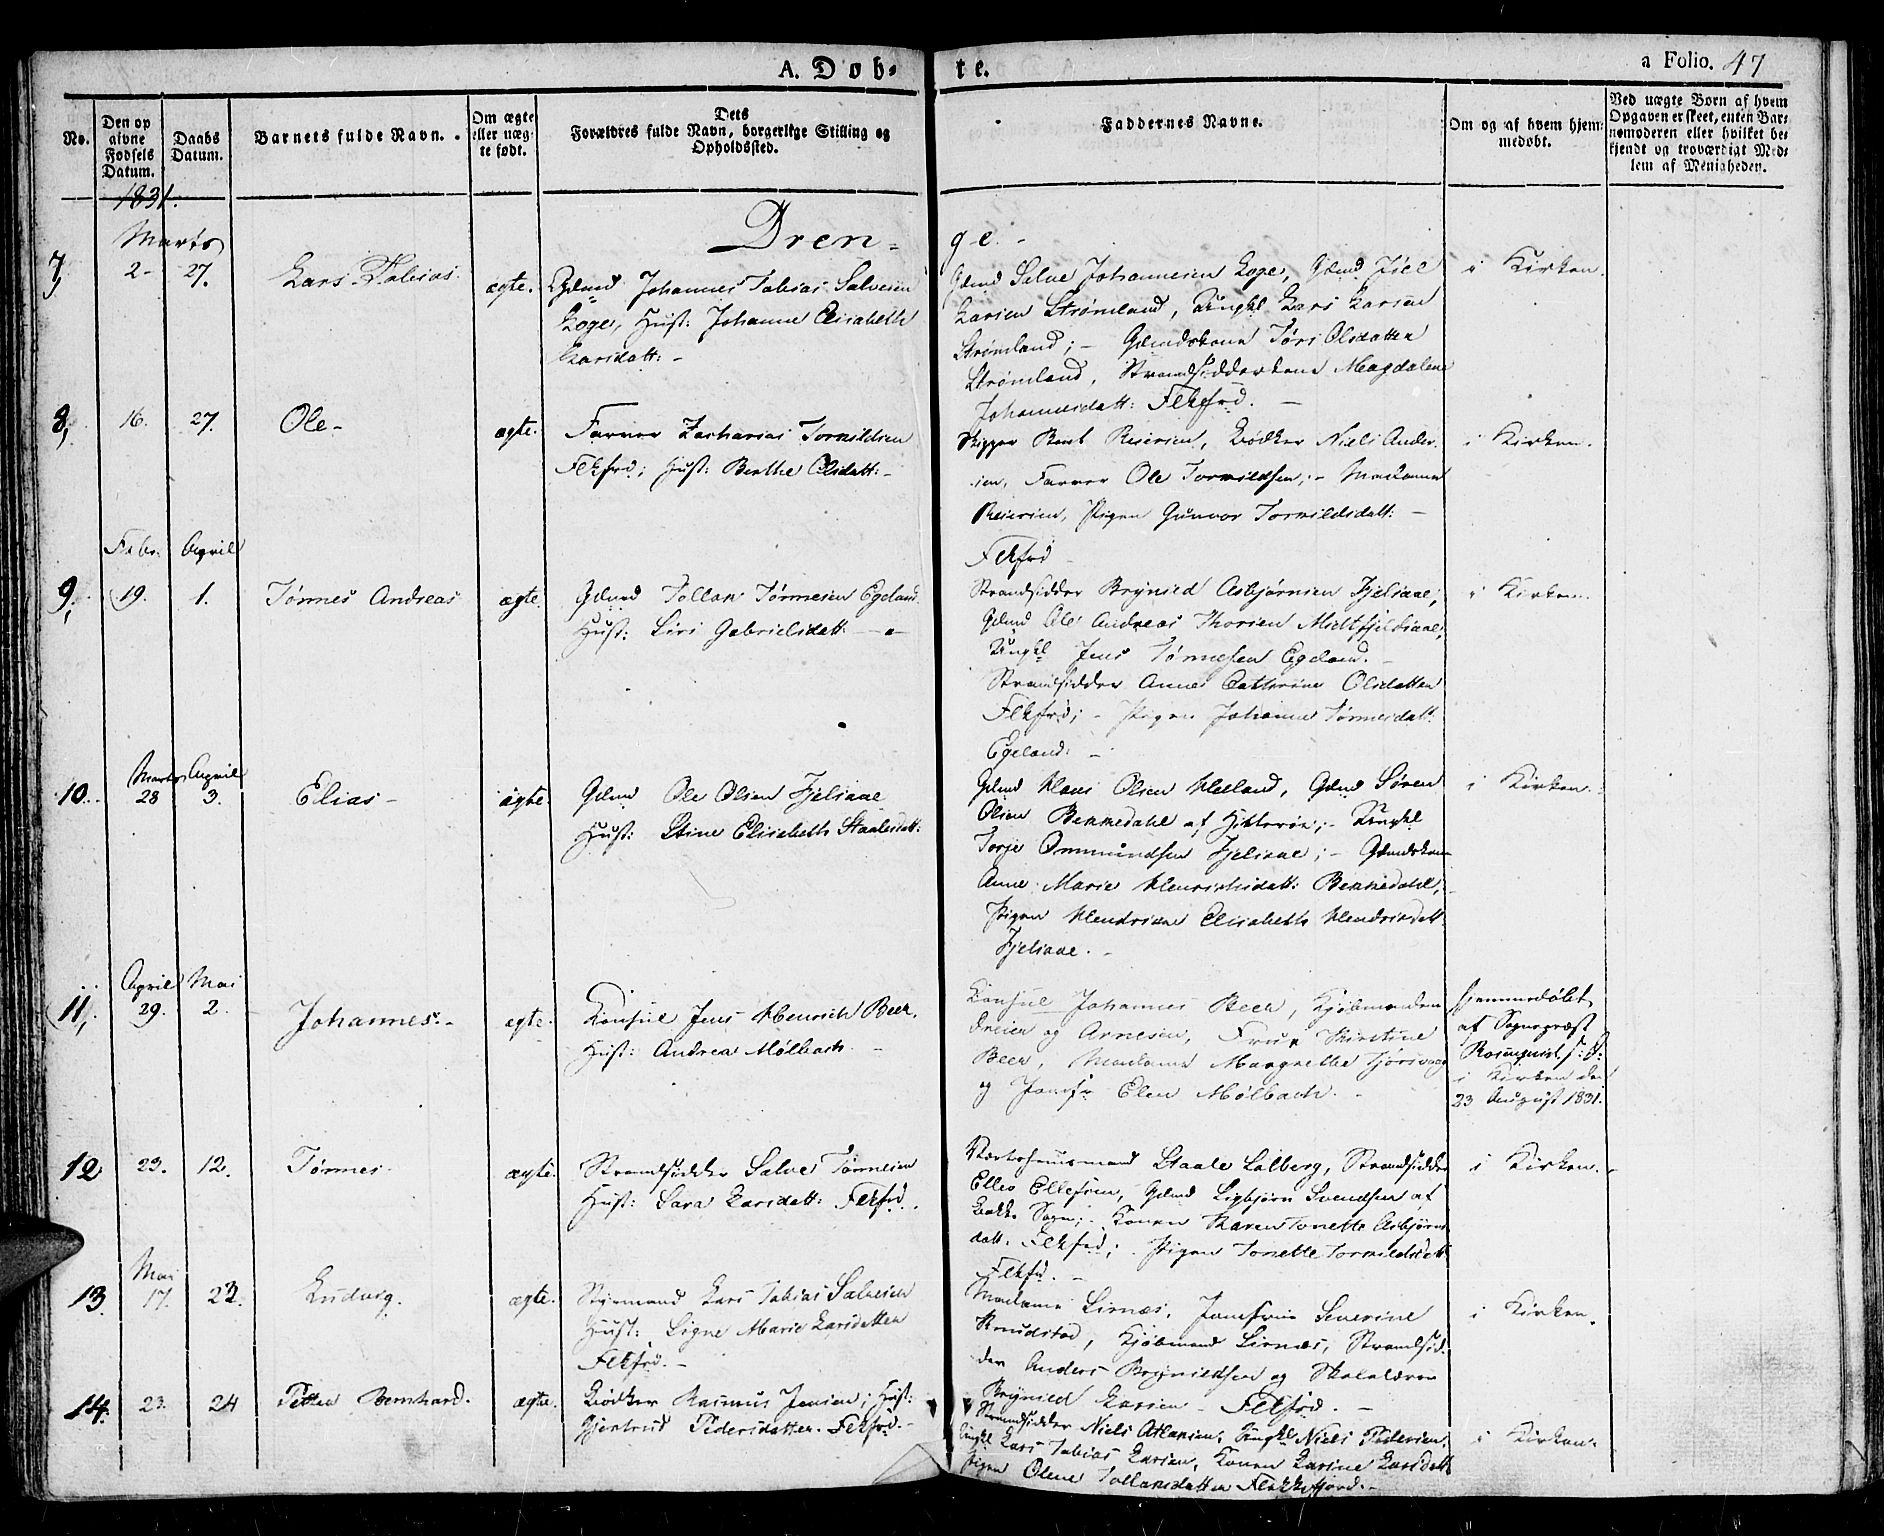 A. Døb-
te.
a Folio. 47
No.
Den op
givne
Fødsels
Datum.
Daabs
Datum.
Barnets fulde Navn.
Om ægte
eller uæg-
te født.
Dets
Forældres fulde Navn, borgerlige Stilling og
Opholdssted.
Faddernes Navne.
Om og af hvem hjem-
medøbt.
Ved uægte Børn af hvem
Opgaven er skeet, enten Bar-
nemoderen eller hvilket be-
kjendt og troværdigt Med-
lem af Menigheden.
1831.
Marts
Dren-
ge.-
7, 2- 27. Lars Tobias. ægte. Gdmd Johannes Tobias Salvesen
Loge, Hust: Johanne Elisabeth
Larsdatt:-
Gdmd Salve Johannesen Loge, Gdmd Joel
Larsen Strømland, Ungkl Lars Larsen
Strømland;- Gdmdskone Tøri Olsdatter
Strømland, Strandsidderkone Magdalene
Johannesdatt: Flekfrd.-
i Kirken.
8, 16. 27. Ole- ægte. Farver Zacharias Tormildsen
Flekfrd; Hust: Berthe Olsdatt:-
Skipper Bent Reiersen, Bødker Niels Ander-
sen, Farver Ole Tormildsen;- Madame
Reiersen, Pigen Gunvor Tormildsdatt:-
Flekfrd
i Kirken.
Febr. April
9, 19. 1. Tønnes Andreas ægte. Gdmd Tollak Tønnesen Egeland.
Hust: Siri Gabrielsdatt:
Strandsidder Brynild Asbjørnsen Fjelsaae,
Gdmd Ole Andreas Thorsen Midtfjeldsaae,
Ungkl Jens Tønnesen Egeland.-
Strandsidder Anne Cathrine Olsdatter
Flekfrd;- Pigen Johanne Tønnesdatt:
Egeland.-
i Kirken.
Marts April
10. 28 3. Elias- ægte. Gdmd Ole Olsen Fjelsaae
Hust: Stine Elisabeth Staalesdatt:
Gdmd Klaus Olsen Helland, Gdmd Søren
Olsen Bekkedahl af Hitterøe;- Ungkl
Torje Ommundsen Fjelsaae;- Gdmdskone
Anne Marie Henrichsdatt: Bekkedahl,
Pigen Hendrikke Elisabeth Hendriksdatt:
Fjelsaae.-
i Kirken.
April Mai
11, 29. 2. Johannes.- ægte. Konsul Jens Henrich Beer.
Hust: Andrea Mølbach.-
Konsul Johannes Beer, Kjøbmændene
Dreier og Arnesen, Frue Kirstine
Beer, Madame Margrethe Tjørsvaag
og Jomfr Elen Mølbach.-
hjemmedøbt
af Sognepræst
Rosenqvist, f: D:
i Kirken den
23 August 1831.
12 23. 12. Tønnes. ægte. Strandsidder Salve Tønnesen
Hust: Sara Larsdatt: Flekfrd.
Værtshuusmand Staale Solberg, Strandsidder
Elles Ellefsen, Gdmd Sigbjørn Svendsen af
Bakke Sogn; Konen Karen Tonette Asbjørns-
datt. Flekfrd;- Pigen Tonette Tormildsdatt
Flekfrd.-
i Kirken.
Mai
13 17. 23. Ludvig. ægte. Styrmand Lars Tobias Salvesen
Hust: Signe Marie Larsdatter
Flekfrd.-
Madame Sirnæs, Jomfrue Severine
Knudstad, Kjøbmand Sirnæs, Strandsid-
der Anders Brynildsen og Skolelærer
Brynild Larsen- Flekfrd.-
i Kirken.
14. 23. 24 Petter Bernhard. ægte. Bødker Rasmus Jensen; Hust:
Gjertrud Pedersdatter. Flekfrd.-
Strandsidder Niels Atlaksen, Ungkl Niels Pedersen,
Ungkl Lars Tobias Larsen, Konen Karine Larsdatt
Pigen Olene Tollaksdatter Flekkefjord.-
i Kirken.